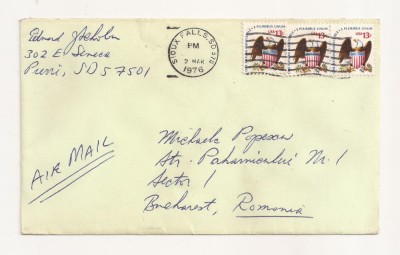 Edward
302 E Seneca
Pierri, SD 57501
SIOUX FALLS, SD
PM
2 MAR
1976
E PLURIBUS UNUM
E PLURIBUS UNUM
E PLURIBUS UNUM
USA 13c
USA 13c
USA 13c
AIR MAIL
Michaela Popescu
Str. Paharnicului Nr. 1
Sector 1
Bucharest, Romania